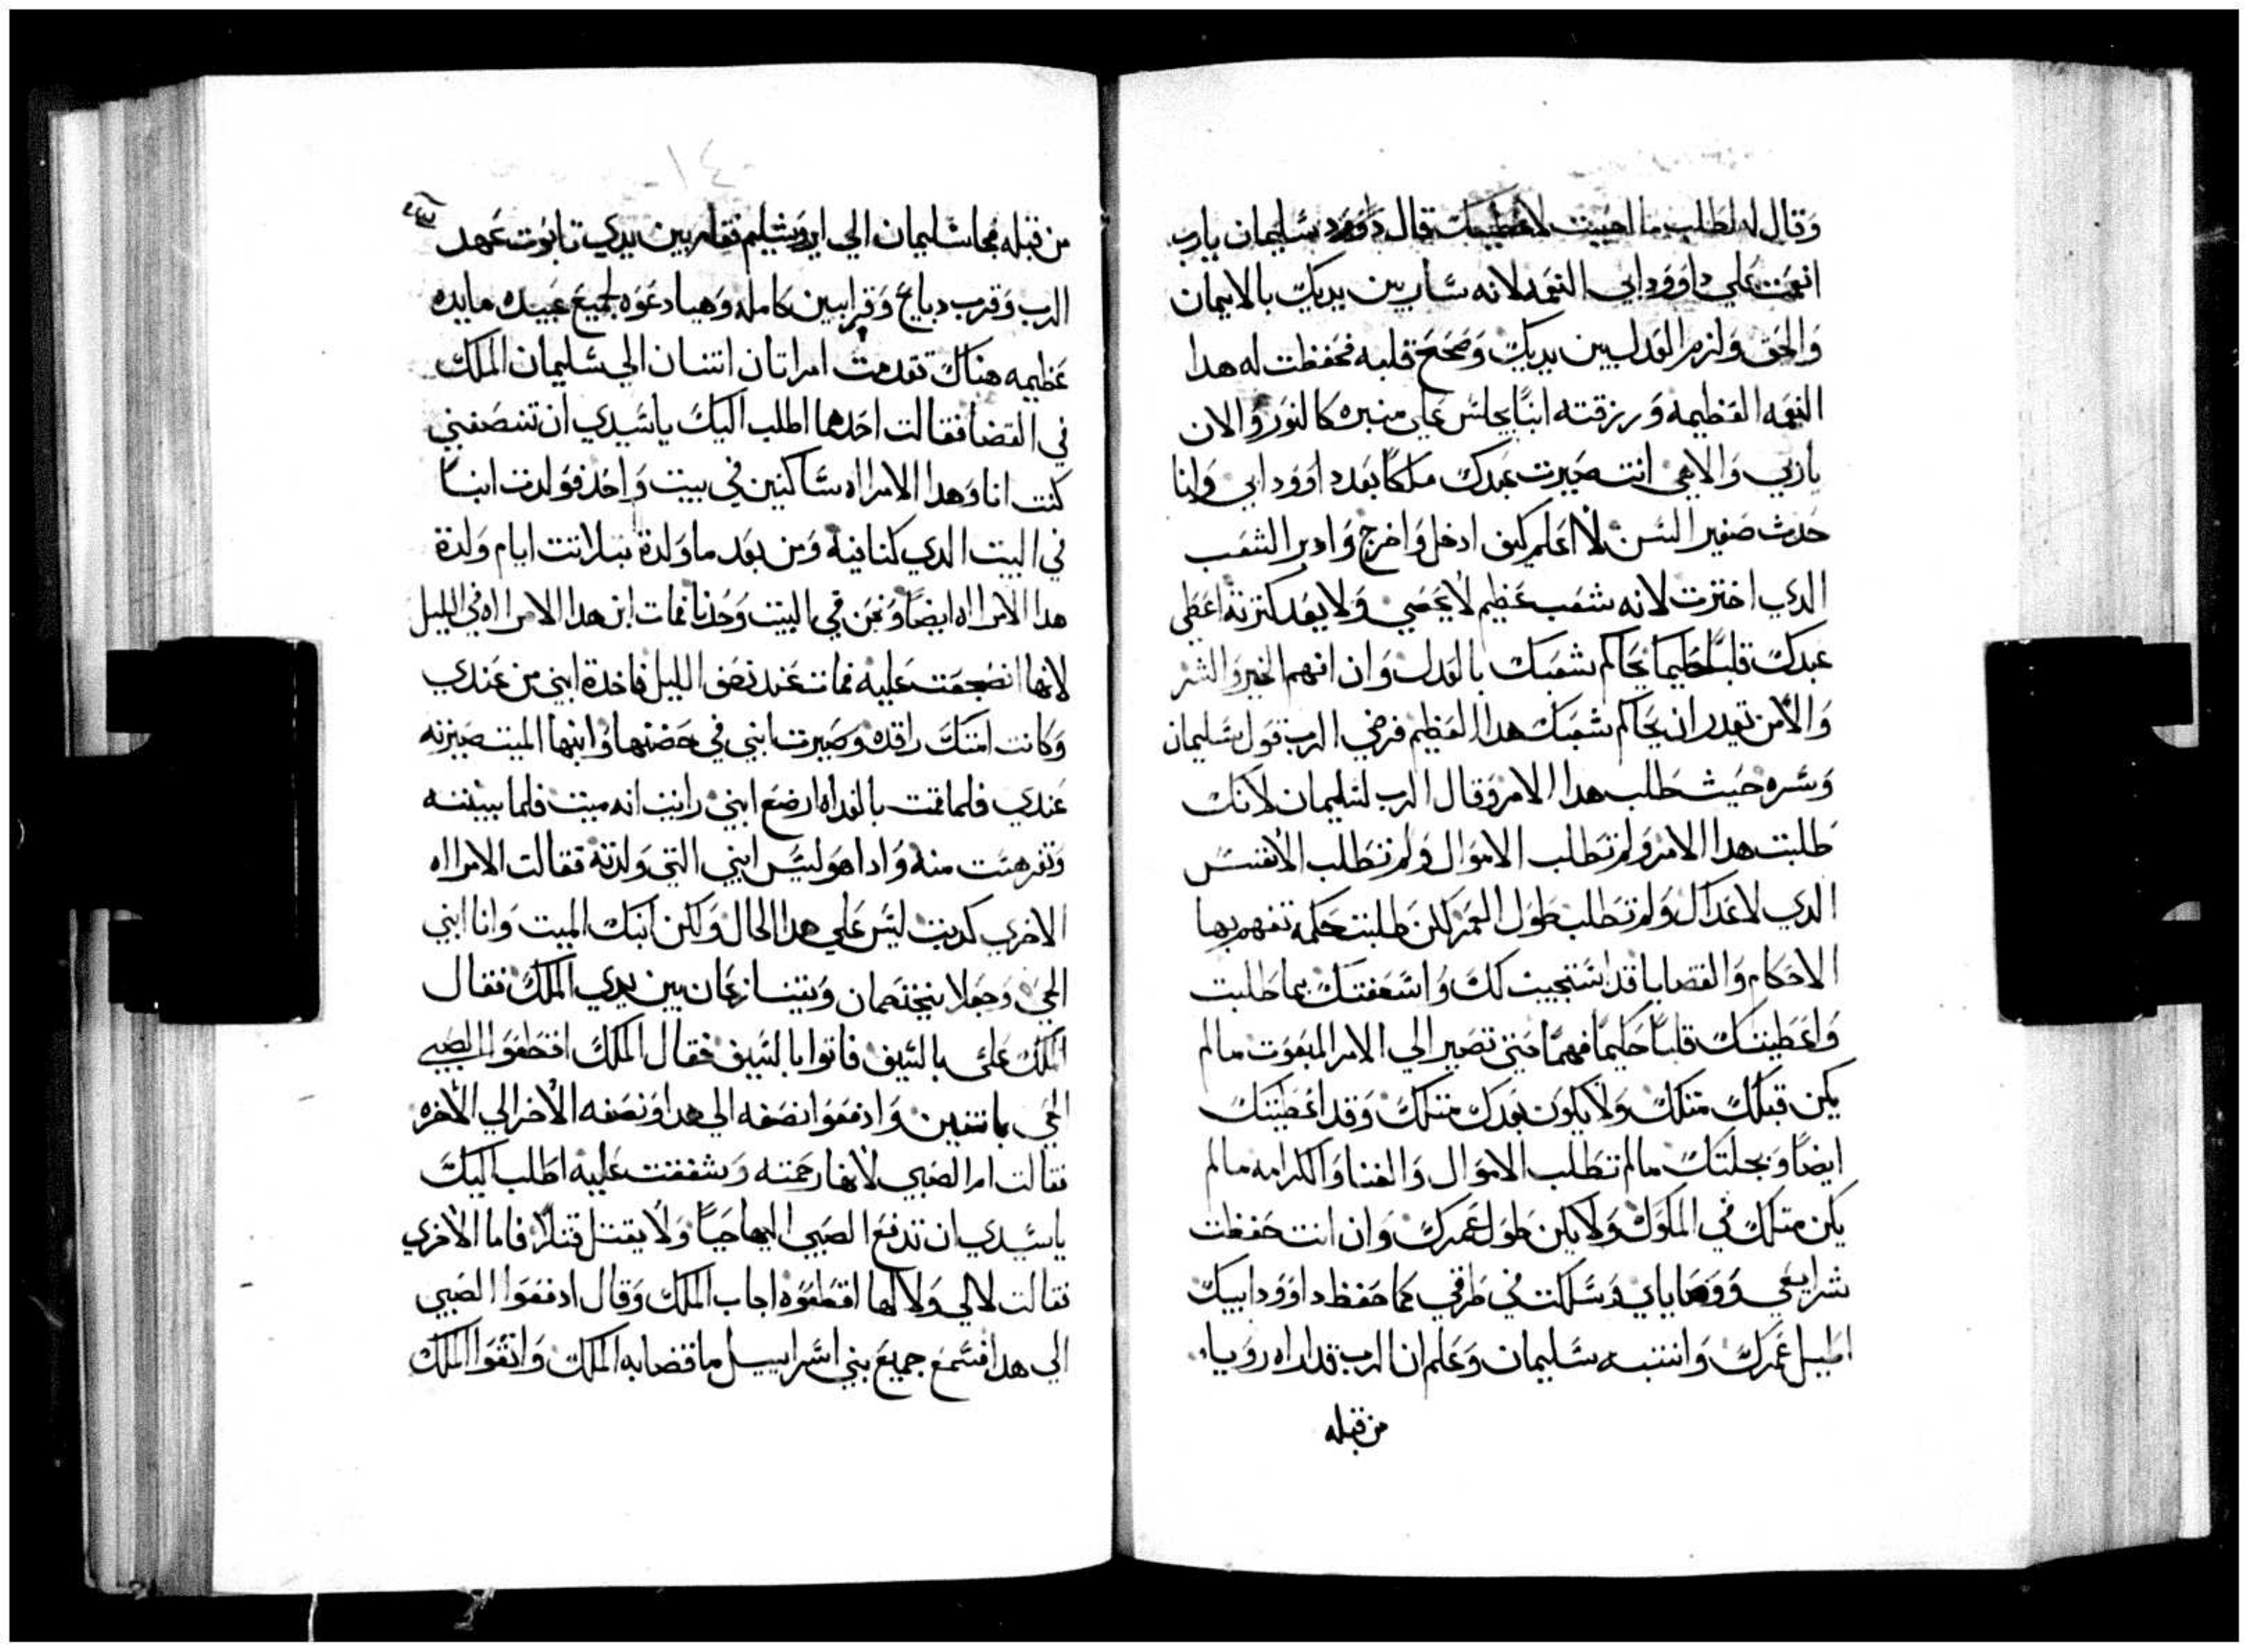 وقال له اطلب ما احببت لاعطيك قال داوود سليمان يارب
انعمت علي داوود ابي النعمه لانه سار بين يديك بالايمان
والحق ولزم العدل بين يديك وصحح قلبه فحفظت له هدا
النعمه العظيمة ورزقته ابنًا يجلس علي منبره كالنور والان
ياربي والاهي انت صيرت عبدك ملكًا بعد داوود ابي وانا
حدث صغير السن لا اعلم كيف ادخل واخرج وادبر الشعب
الدي اخترت لانه شعب عظيم لا يحصي ولا يعد كترته اعطي
عبدك قلبًا حليما يحاكم شعبك بالعدل وان افهم الخير والشر
والا من يقدر ان يحاكم شعبك هدا العظيم فرضي الرب قول سليمان
وسره حيث طلب هدا الامر وقال الرب لسليمان لانك
طلبت هدا الامر ولم تطلب الاموال ولم تطلب الانفس
الدي لاعداك ولم تطلب طول العمر لكن طلبت حكمه تفهم بها
الاحكام والقضايا قد استجيبت لك واسعفتك بما طلبت
واعطيتك قلبًا حكيمًا فهمًا متي تصير الي الامر المبغوت مالم
يكن قبلك متلك ولا يكون بعدك متلك وقد اعطيتك
ايضًا وبجلتك مالم تطلب الاموال والغنا والكرامه مالم
يكن متلك في الملوك ولا يكن طول عمرك وان انت حفظت
شرايعي ووصاياي وسلكت في طرقي كما حفظ داوود ابيك
اطيل عمرك وانتبه سليمان وعلم ان الرب قد اراه رويا
من قبله
من قبله فجا سليمان الي ايروشليم فقام بين يدي تابوت عهد
الرب وقرب دبايح وقرابين كامله وهيا دعوه لجميع عبيده مايده
عظيمه هناك تقدمت امراتان اتنتان الي سليمان الملك
في القضا فقالت احدهما اطلب اليك ياسيدي ان تنصفني
كنت انا وهدا الامراه ساكنين في بيت واحد فولدت ابنًا
في البيت الدي كنا فيه ومن بعد ما ولدة بتلاتت ايام ولدة
هدا الامراه ايضًا ونحن في البيت وحدنا فمات ابن هدا الامراه في الليل
لانها انضجعت عليه فمات عند نصف الليل فاخدة ابني من عندي
وكانت امتك راقده وصيرت ابني في حضنها وابنها الميت صيرته
عندي فلما قمت بالغداه ارضع ابني رايت انه ميت فلما بينته
وتفرهست منه وادا هو ليس ابني التي ولدته فقالت الامراه
الاخري كدبت ليس علي هدا الحال ولكن ابنك الميت وانا ابني
الحي وجعلا يتخصمان ويتنازعان بين يدي الملك فقال
الملك علي بالسيف فاتوا بالسيف فقال الملك اقطعوا الصبي
الحي باتنين وادفعوا نصفه الي هدا ونصفه الاخر الي الاخره
فقالت ام الصبي لانها رحمته وشفقت عليه اطلب اليك
ياسيدي ان تدفع الصبي اليها حيًا ولا يقتل قتلا فاما الاخري
فقالت لا لي ولا لها اقطعوه اجاب الملك وقال ادفعوا الصبي
الي هدا فسمع جميع بني اسراييل ما قضا به الملك واتقوا الملك